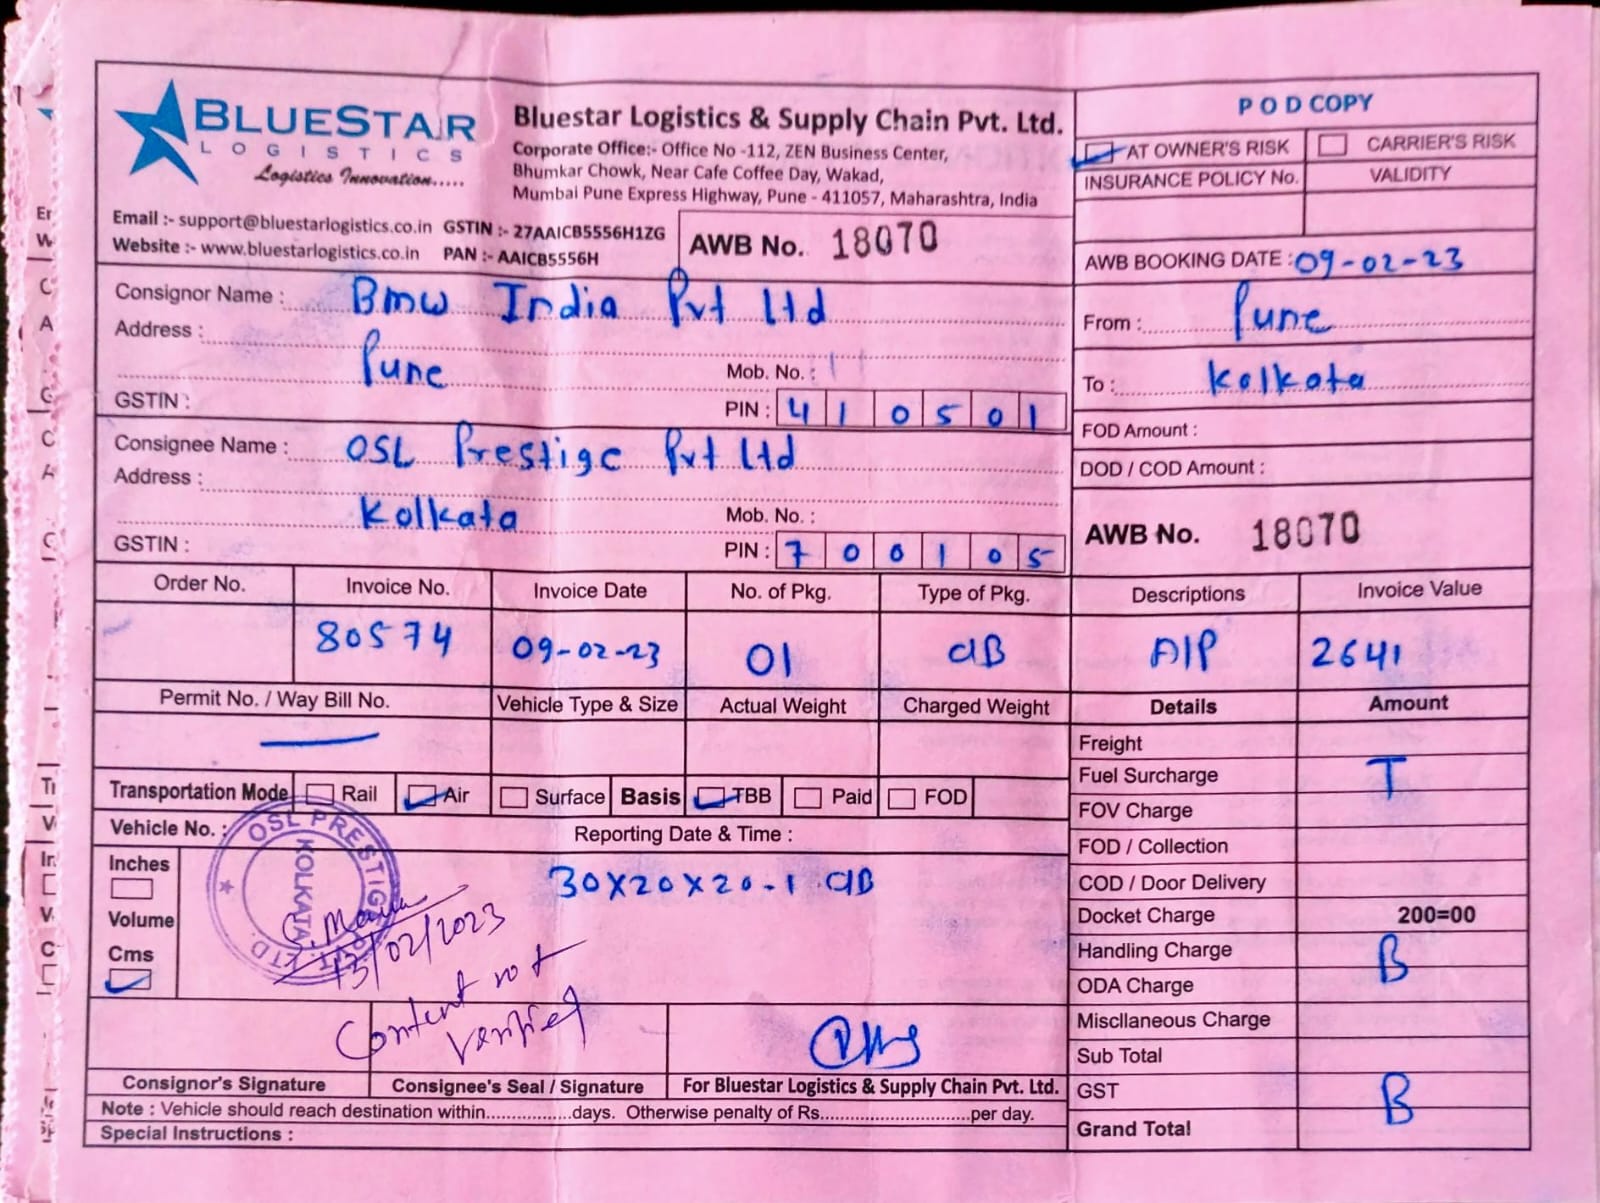 BLUESTAR
LOGISTICS
Logistics Innovation.....
Bluestar Logistics & Supply Chain Pvt. Ltd.
Corporate Office:- Office No -112, ZEN Business Center,
Bhumkar Chowk, Near Cafe Coffee Day, Wakad,
Mumbai Pune Express Highway, Pune - 411057, Maharashtra, India
Email :- support@bluestarlogistics.co.in GSTIN :- 27AAICB5556H1ZG
Website :- www.bluestarlogistics.co.in PAN :- AAICB5556H
AWB No. 18070
P O D COPY
AT OWNER'S RISK CARRIER'S RISK
INSURANCE POLICY No. VALIDITY
AWB BOOKING DATE : 09-02-23
Consignor Name : BMW India Pvt Ltd
Address :
Pune Mob. No. :
GSTIN : PIN : 410501
From : Pune
To : Kolkata
FOD Amount :
DOD / COD Amount :
Consignee Name : OSL Prestige Pvt Ltd
Address :
Kolkata Mob. No. :
GSTIN : PIN : 700105
AWB No. 18070
Order No. Invoice No. Invoice Date No. of Pkg. Type of Pkg. Descriptions Invoice Value
80574 09-02-23 01 CIB AIP 2641
Permit No. / Way Bill No. Vehicle Type & Size Actual Weight Charged Weight Details Amount
Freight
Fuel Surcharge T
FOV Charge
FOD / Collection
COD / Door Delivery
Docket Charge 200=00
Handling Charge B
ODA Charge
Miscllaneous Charge
Sub Total
GST B
Grand Total
Transportation Mode Rail Air Surface Basis TBB Paid FOD
Vehicle No. : Reporting Date & Time :
Inches
Volume
Cms
30X20X20-1 CIB
OSL PRESTIGE PVT. LTD.
KOLKATA
13/02/2023
Content not
verified
Consignor's Signature Consignee's Seal / Signature For Bluestar Logistics & Supply Chain Pvt. Ltd.
Note : Vehicle should reach destination within................days. Otherwise penalty of Rs............................per day.
Special Instructions :